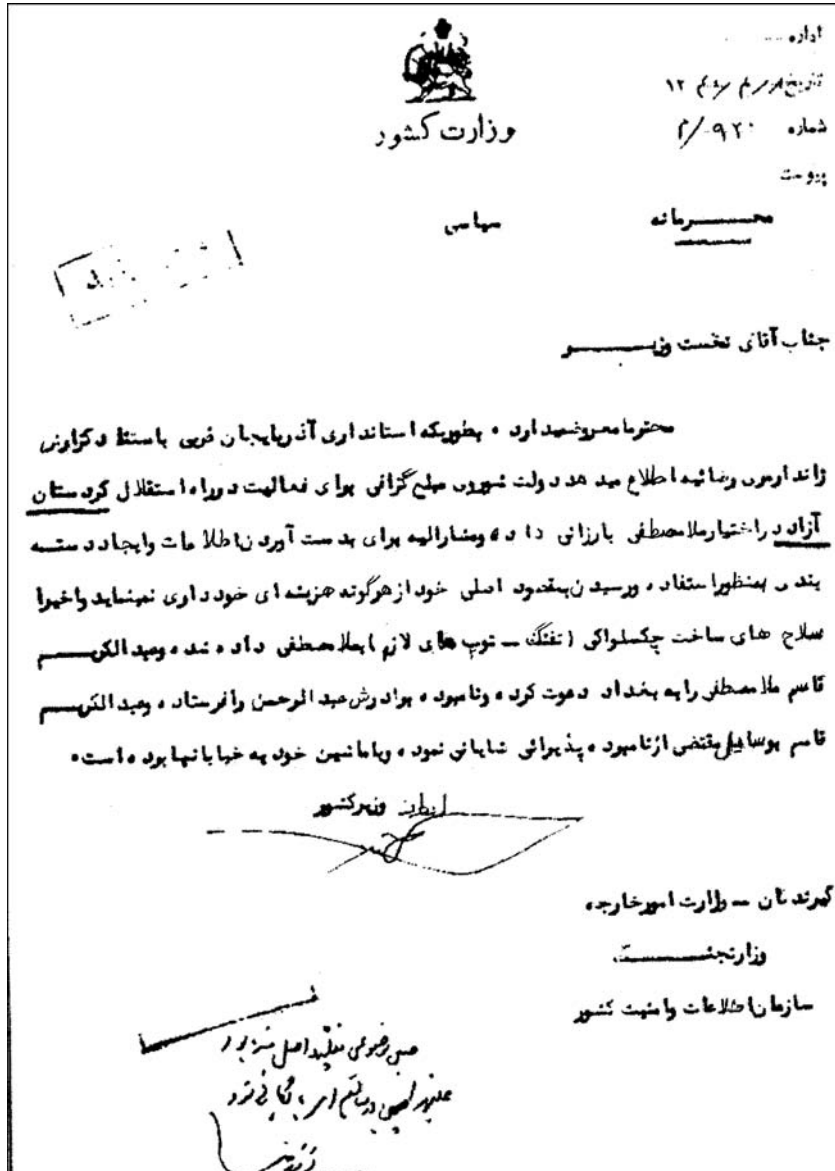 اداره
تاریخ
شماره ۹۲۰/م
پیوست
وزارت کشور
محــــــرمانه
سیاسی
جناب آقای نخست وزیـــــــر
محترما معروضمیدارد ۰ بطوریکه استانداری آذربایجان غربی باستناد گزارش
ژاندارمری رضائیه اطلاع میدهد دولت شوروی مبلغ گزافی برای فعالیت در راه استقلال کردستان
آزاد در اختیار ملامصطفی بارزانی داده ومشارالیه برای بدست آوردن اطلاعات وایجاد دسته
بندی بمنظور استفاده ورسیدن بمقصود اصلی خود از هرگونه هزینه ای خودداری نمینماید واخیرا
سلاح های ساخت چکسلواکی (تفنگ ــ توپ های لازم) بملامصطفی داده شده وعبدالکریـــــم
قاسم ملامصطفی رابه بغداد دعوت کرده ونامبرده برادرش عبدالرحمن رافرستاده وعبدالکریـــــم
قاسم بوسایل مقتضی ازنامبرده پذیرائی شایانی نموده وباماشین خود به خیابانهابرده است۰
وزیرکشور
گیرندگان ــ وزارت امورخارجه
وزارتجنـــــــگ
سازمان اطلاعات وامنیت کشور